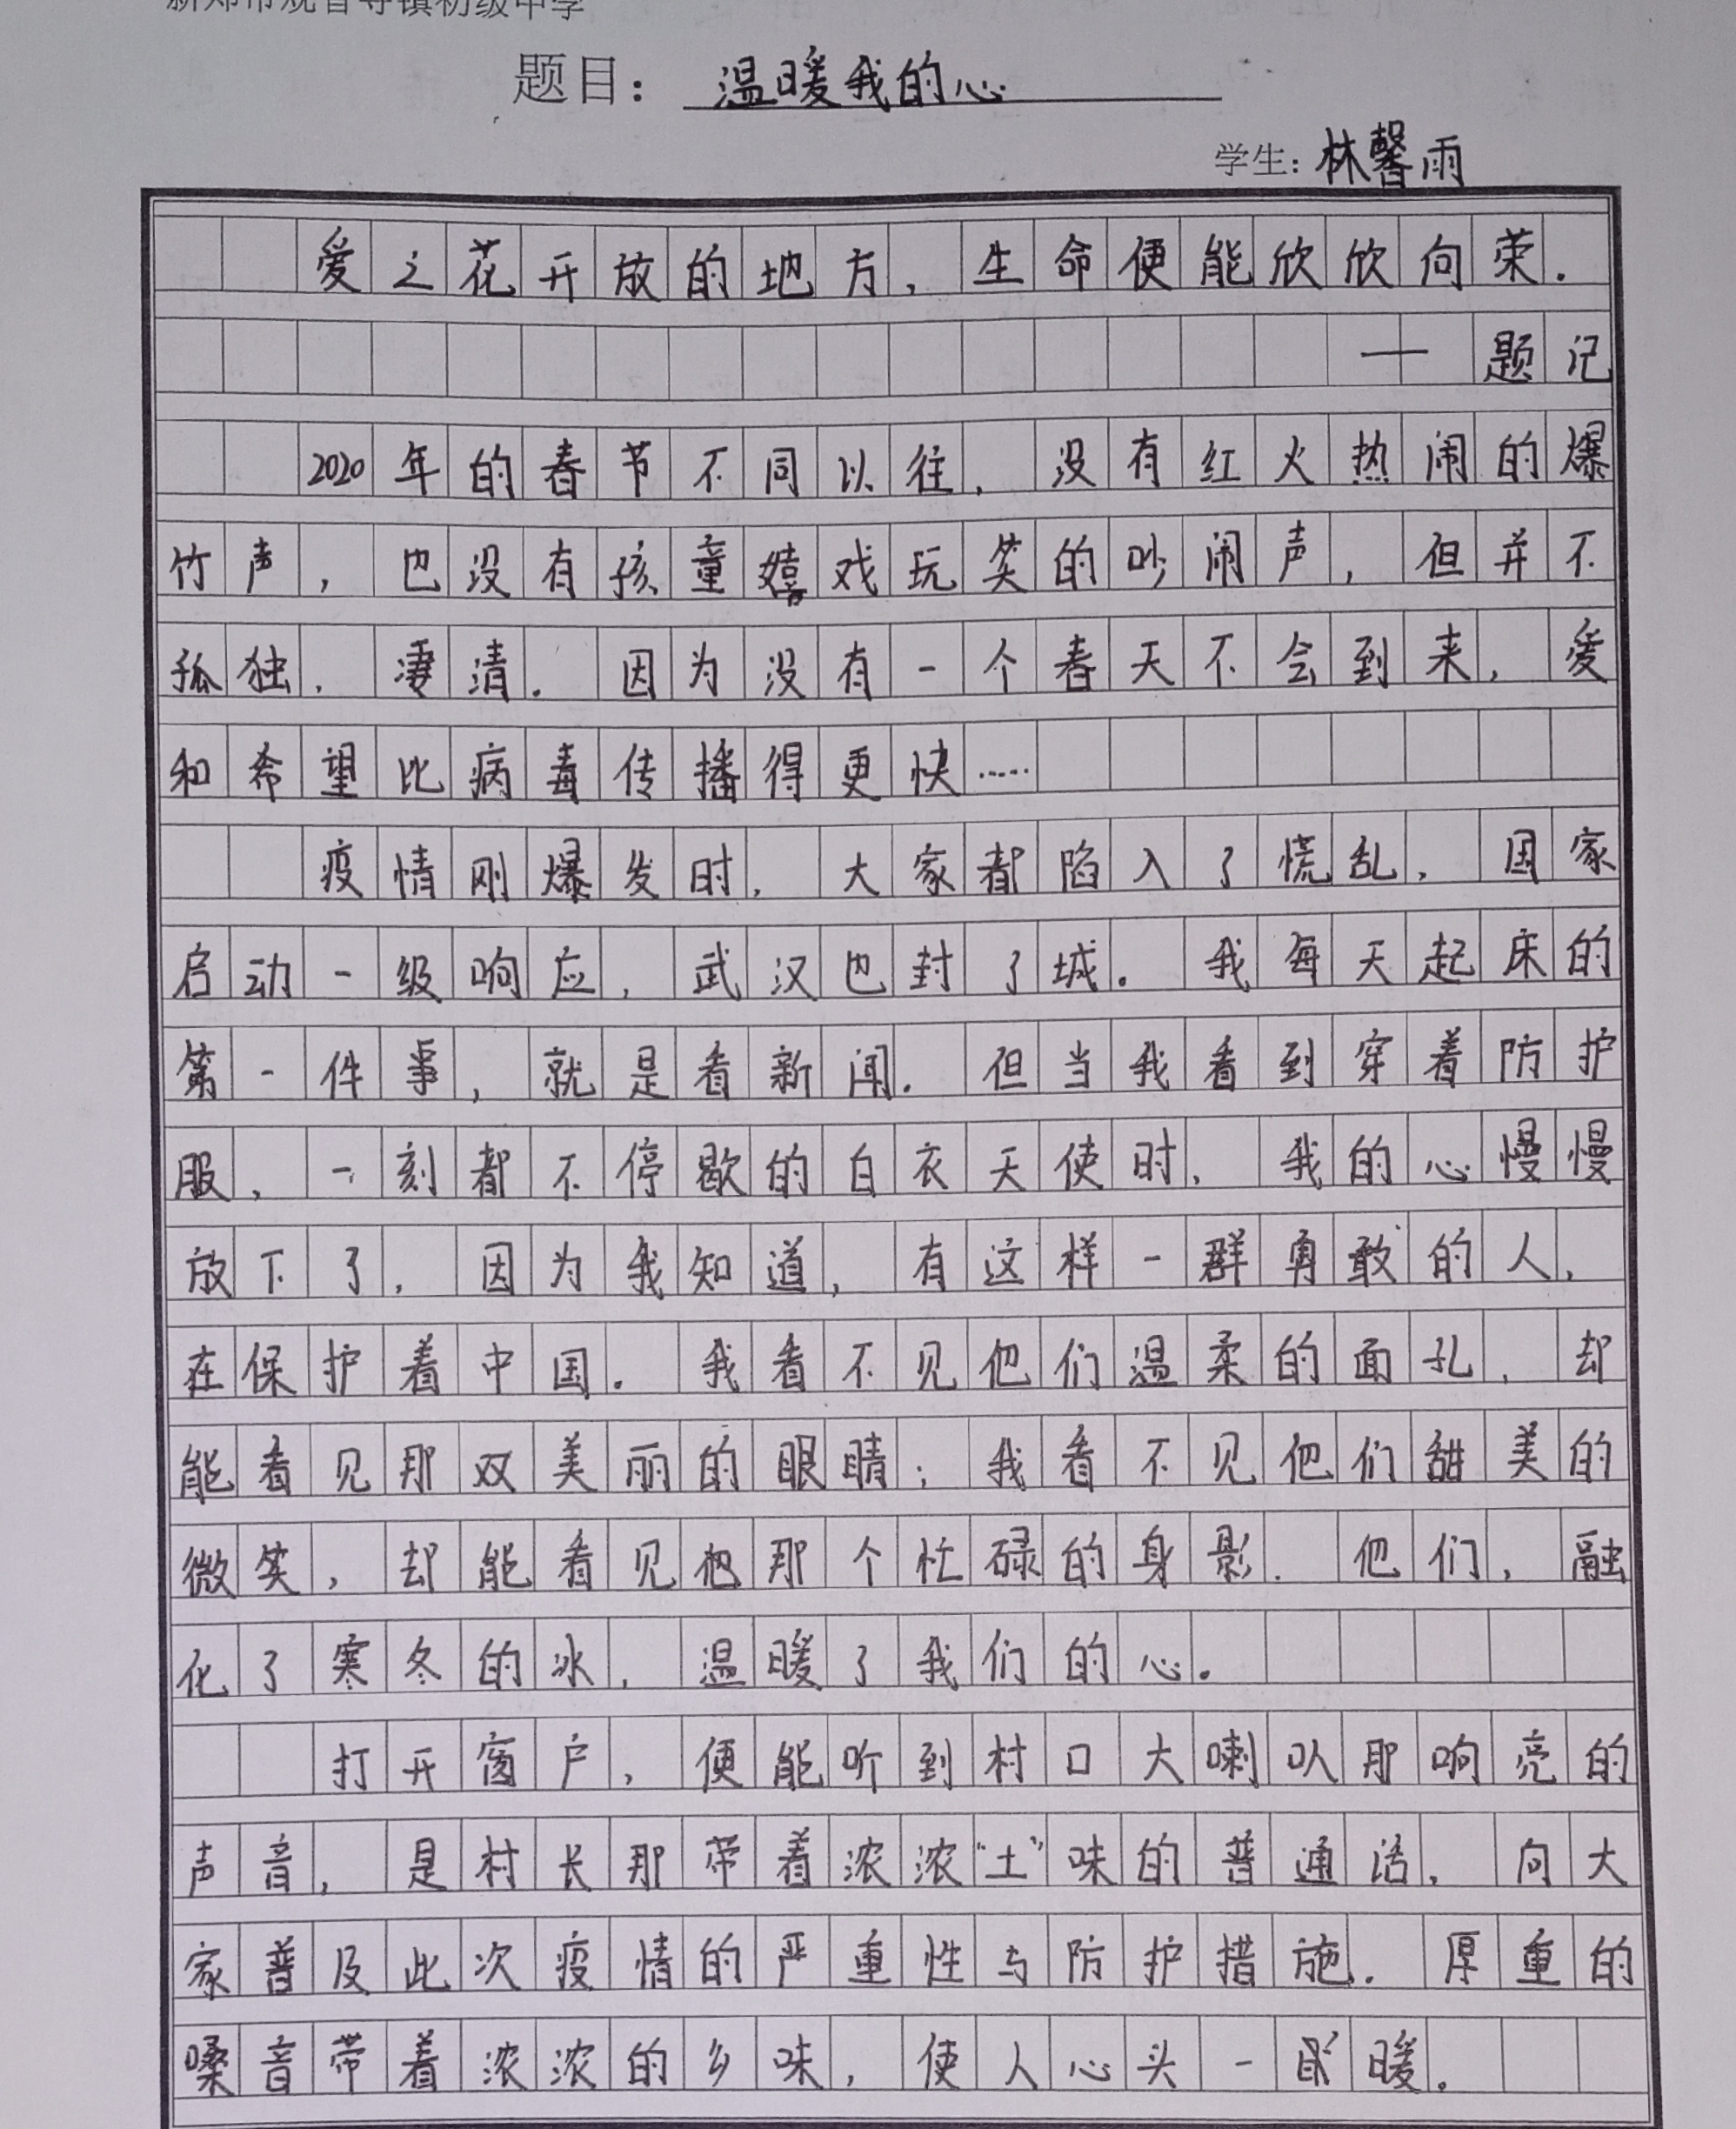 新郑市观音寺镇初级中学
题目：温暖我的心
学生：林馨雨
爱之花开放的地方，生命便能欣欣向荣.
——题记
2020年的春节不同以往，没有红火热闹的爆
竹声，也没有孩童嬉戏玩笑的吵闹声，但并不
孤独，凄清.因为没有一个春天不会到来，爱
和希望比病毒传播得更快……
疫情刚爆发时，大家都陷入了慌乱，国家
启动一级响应，武汉也封了城。我每天起床的
第一件事，就是看新闻.但当我看到穿着防护
服，一刻都不停歇的白衣天使时，我的心慢慢
放下了，因为我知道，有这样一群勇敢的人，
在保护着中国。我看不见他们温柔的面孔，却
能看见那双美丽的眼睛；我看不见他们甜美的
微笑，却能看见他那个忙碌的身影.他们，融
化了寒冬的冰，温暖了我们的心。
打开窗户，便能听到村口大喇叭那响亮的
声音，是村长那带着浓浓“土”味的普通话，向大
家普及此次疫情的严重性与防护措施.厚重的
嗓音带着浓浓的乡味，使人心头一暖。